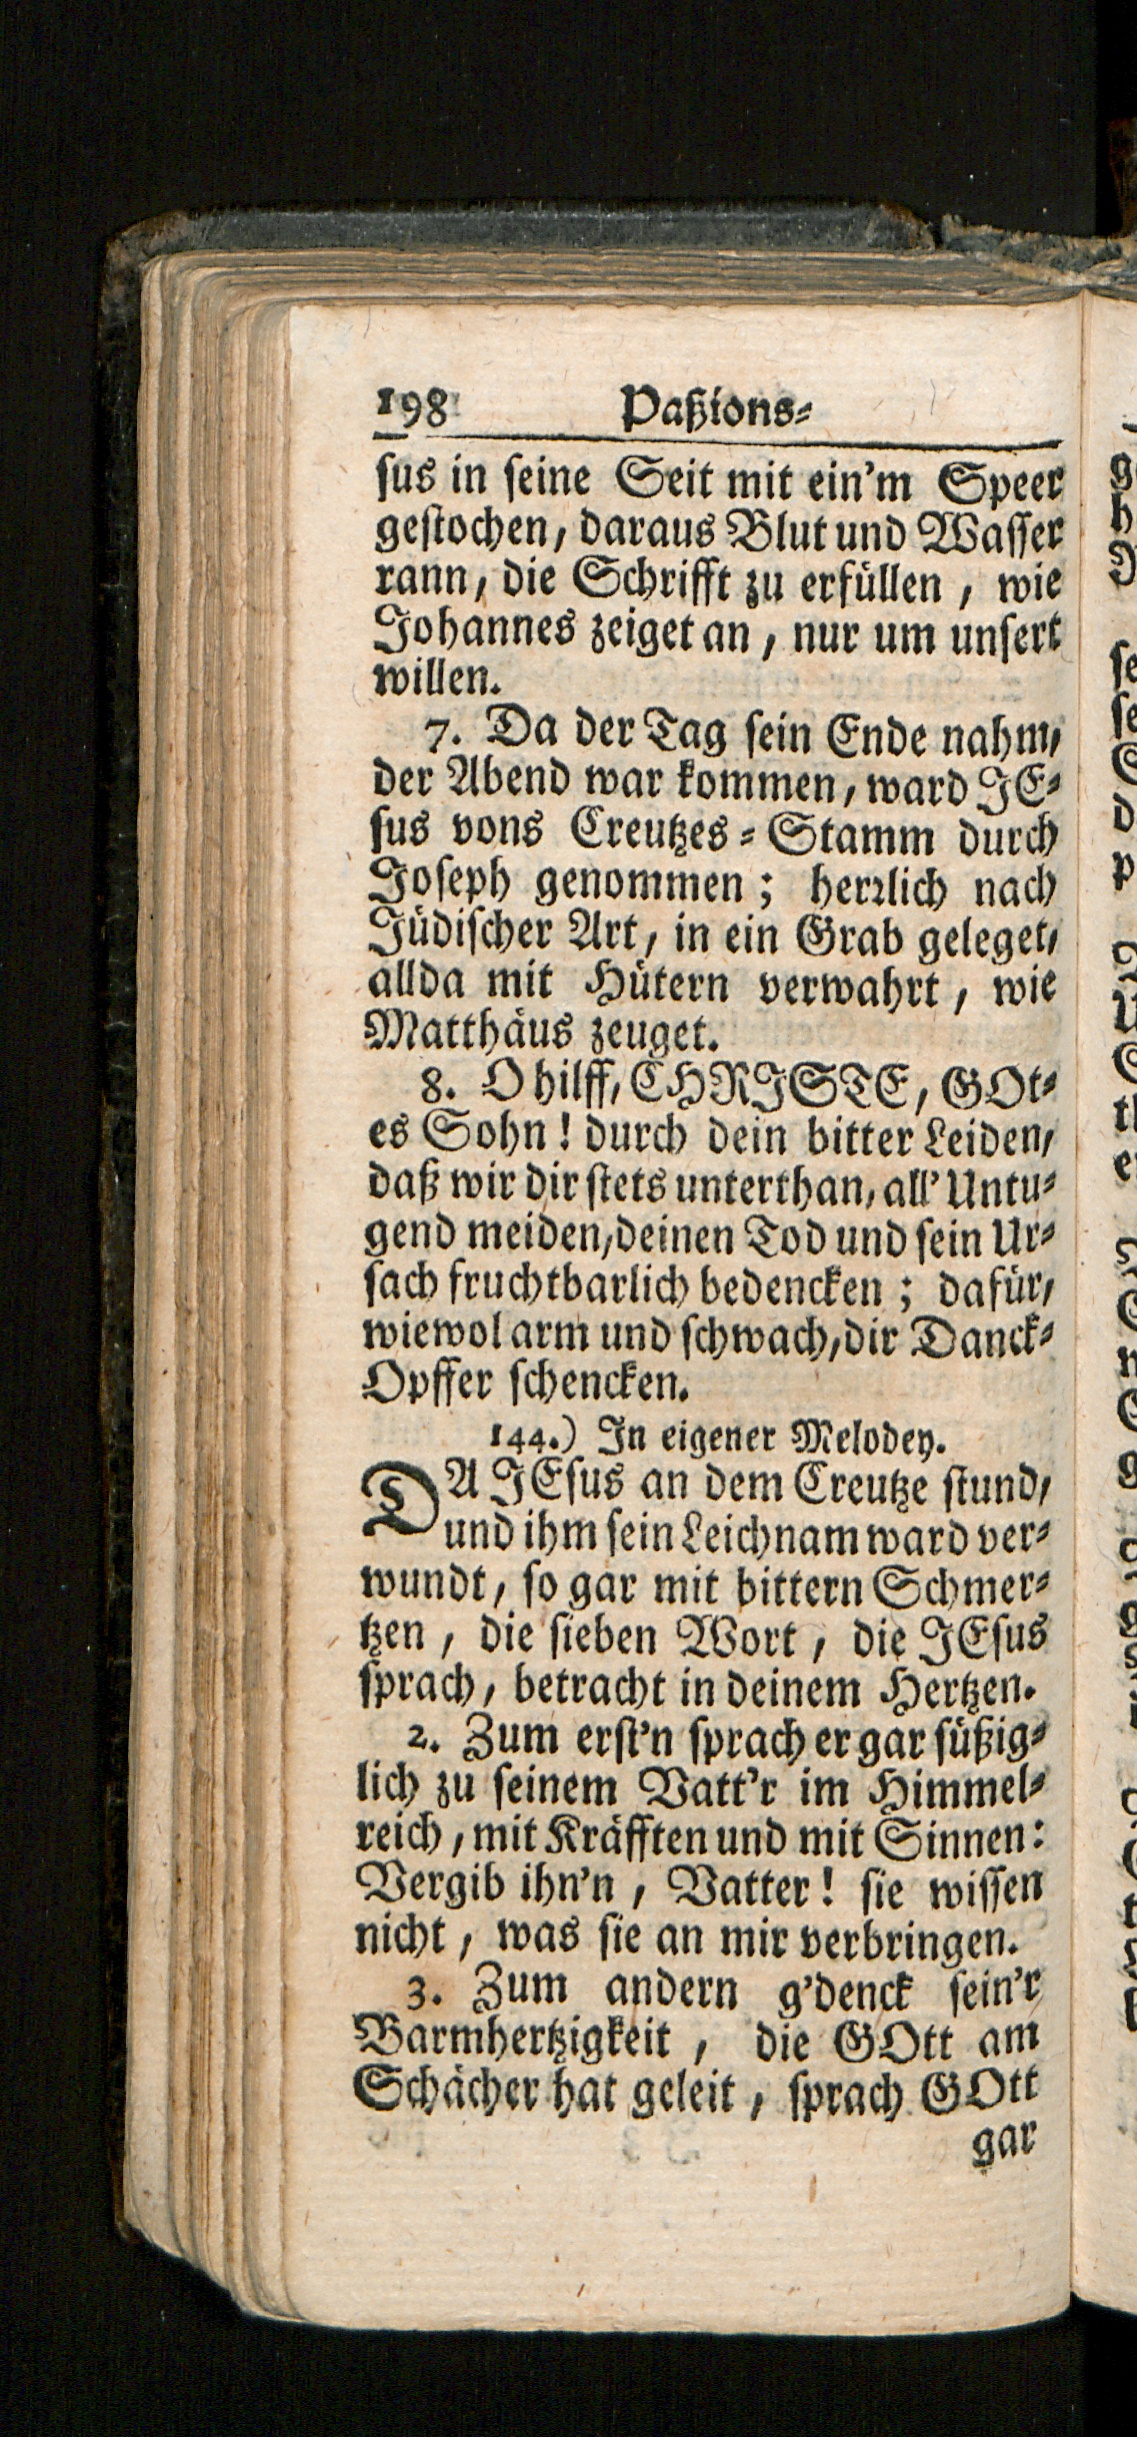 198 Paßions-
sus in seine Seit mit ein'm Speer
gestochen, daraus Blut und Wasser
rann, die Schrifft zu erfüllen, wie
Johannes zeiget an, nur um unsert
willen.
7. Da der Tag sein Ende nahm,
der Abend war kommen, ward JE-
sus vons Creutzes-Stamm durch
Joseph genommen; herrlich nach
Jüdischer Art, in ein Grab geleget,
allda mit Hütern verwahrt, wie
Matthäus zeuget.
8. O hilff, CHRISTE, GOt-
es Sohn! durch dein bitter Leiden,
daß wir dir stets unterthan, all' Untu-
gend meiden, deinen Tod und sein Ur-
sach fruchtbarlich bedencken; dafür,
wiewol arm und schwach, dir Danck-
Opffer schencken.
144.) In eigener Melodey.
DA JEsus an dem Creutze stund,
und ihm sein Leichnam ward ver-
wundt, so gar mit bittern Schmer-
tzen, die sieben Wort, die JEsus
sprach, betracht in deinem Hertzen.
2. Zum erst'n sprach er gar süßig-
lich zu seinem Vatt'r im Himmel-
reich, mit Kräfften und mit Sinnen:
Vergib ihn'n, Vatter! sie wissen
nicht, was sie an mir verbringen.
3. Zum andern g'denck sein'r
Barmhertzigkeit, die GOtt am
Schächer hat geleit, sprach GOtt
gar